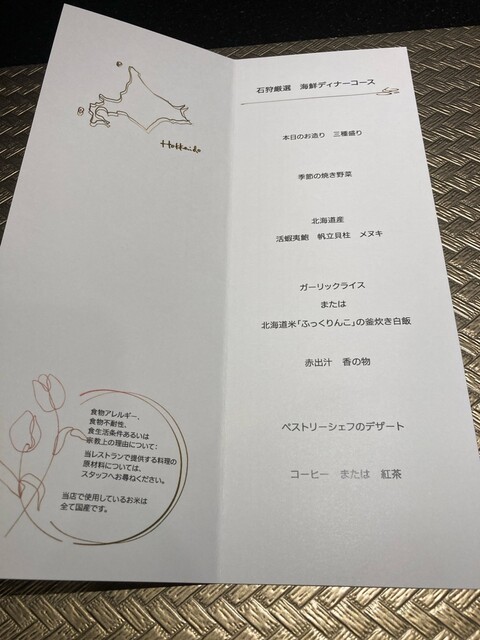 Hokkaido
食物アレルギー、
食物不耐性、
食生活条件あるいは
宗教上の理由について:
当レストランで提供する料理の
原材料については、
スタッフへお尋ねください。
当店で使用しているお米は
全て国産です。
石狩厳選 海鮮ディナーコース
本日のお造り 三種盛り
季節の焼き野菜
北海道産
活蝦夷鮑 帆立貝柱 メヌキ
ガーリックライス
または
北海道米「ふっくりんこ」の釜炊き白飯
赤出汁 香の物
ペストリーシェフのデザート
コーヒー または 紅茶